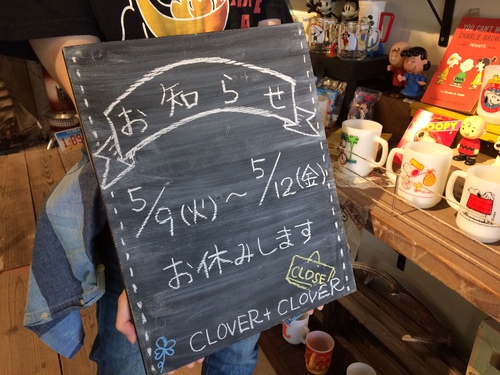 お知らせ
5/9(火)〜5/12(金)
お休みします
CLOSE!
CLOVER+CLOVER!
YOU CAN'T WIN,
CHARLIE BROWN
PEANUTS
SNOOPY